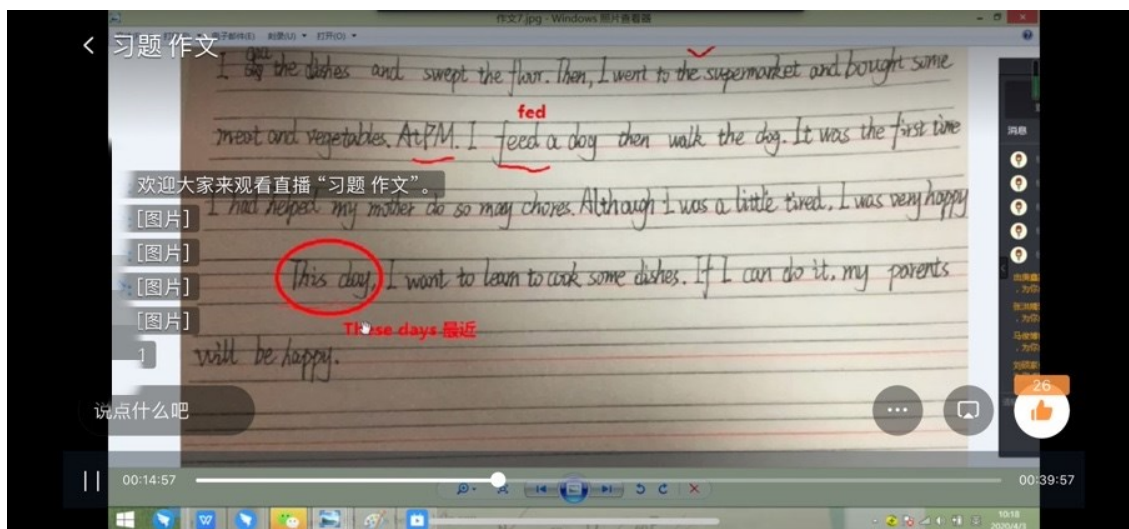 作文7.jpg - Windows 照片查看器
习题 作文
电子邮件(E) 刻录(U) 打开(O)
I the dishes and swept the floor. Then, I went to the supermarket and bought some
fed
meat and vegetables. At PM. I feed a dog then walk the dog. It was the first time
消息
欢迎大家来观看直播“习题 作文”。
I had helped my mother do so may chores. Although I was a little tired, I was very happy
[图片]
[图片]
This day, I want to learn to cook some dishes. If I can do it, my parents
[图片]
[图片]
These days 最近
1
will be happy.
26
说点什么吧
00:14:57
00:39:57
10:18
2020/4/3